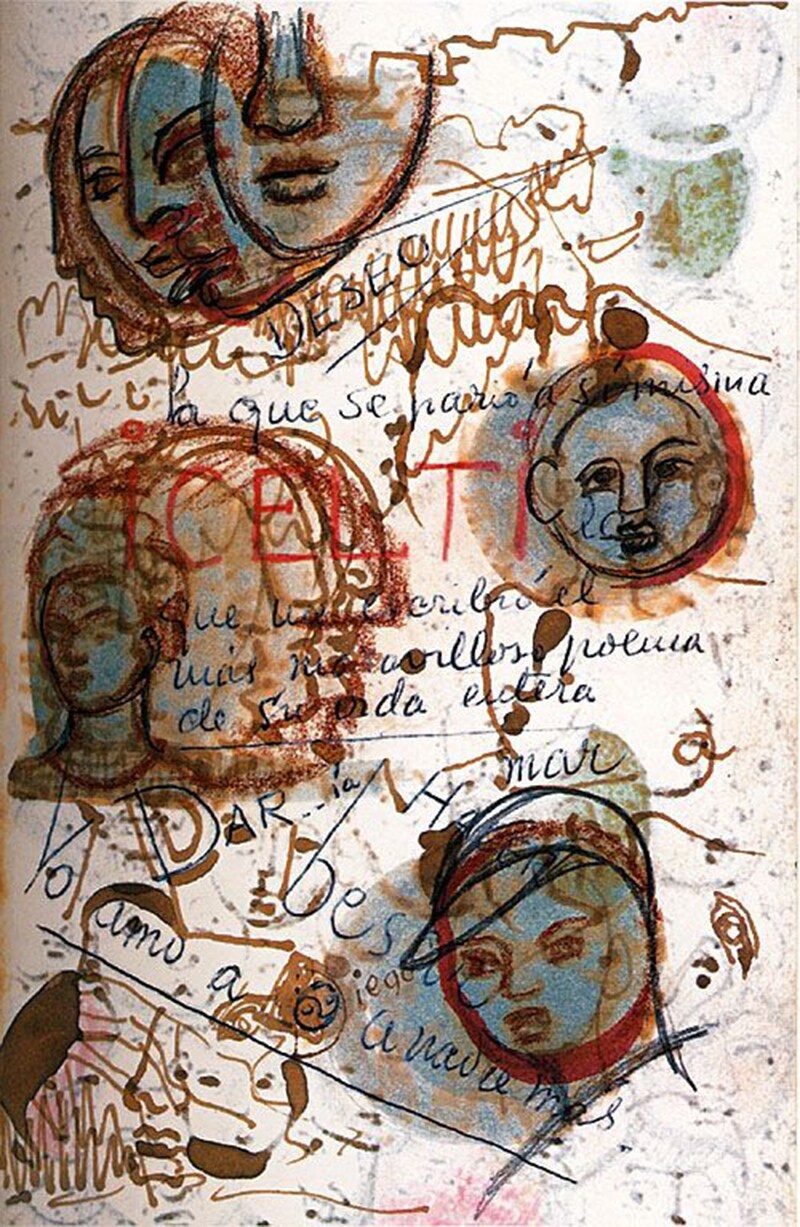 DESEO
la que se parió a si misma
iCELTi
que me escribió el
más maravilloso poema
de su vida entera
mar
DAR..ía
Yo
Bese
amo a Diego
a nadie más